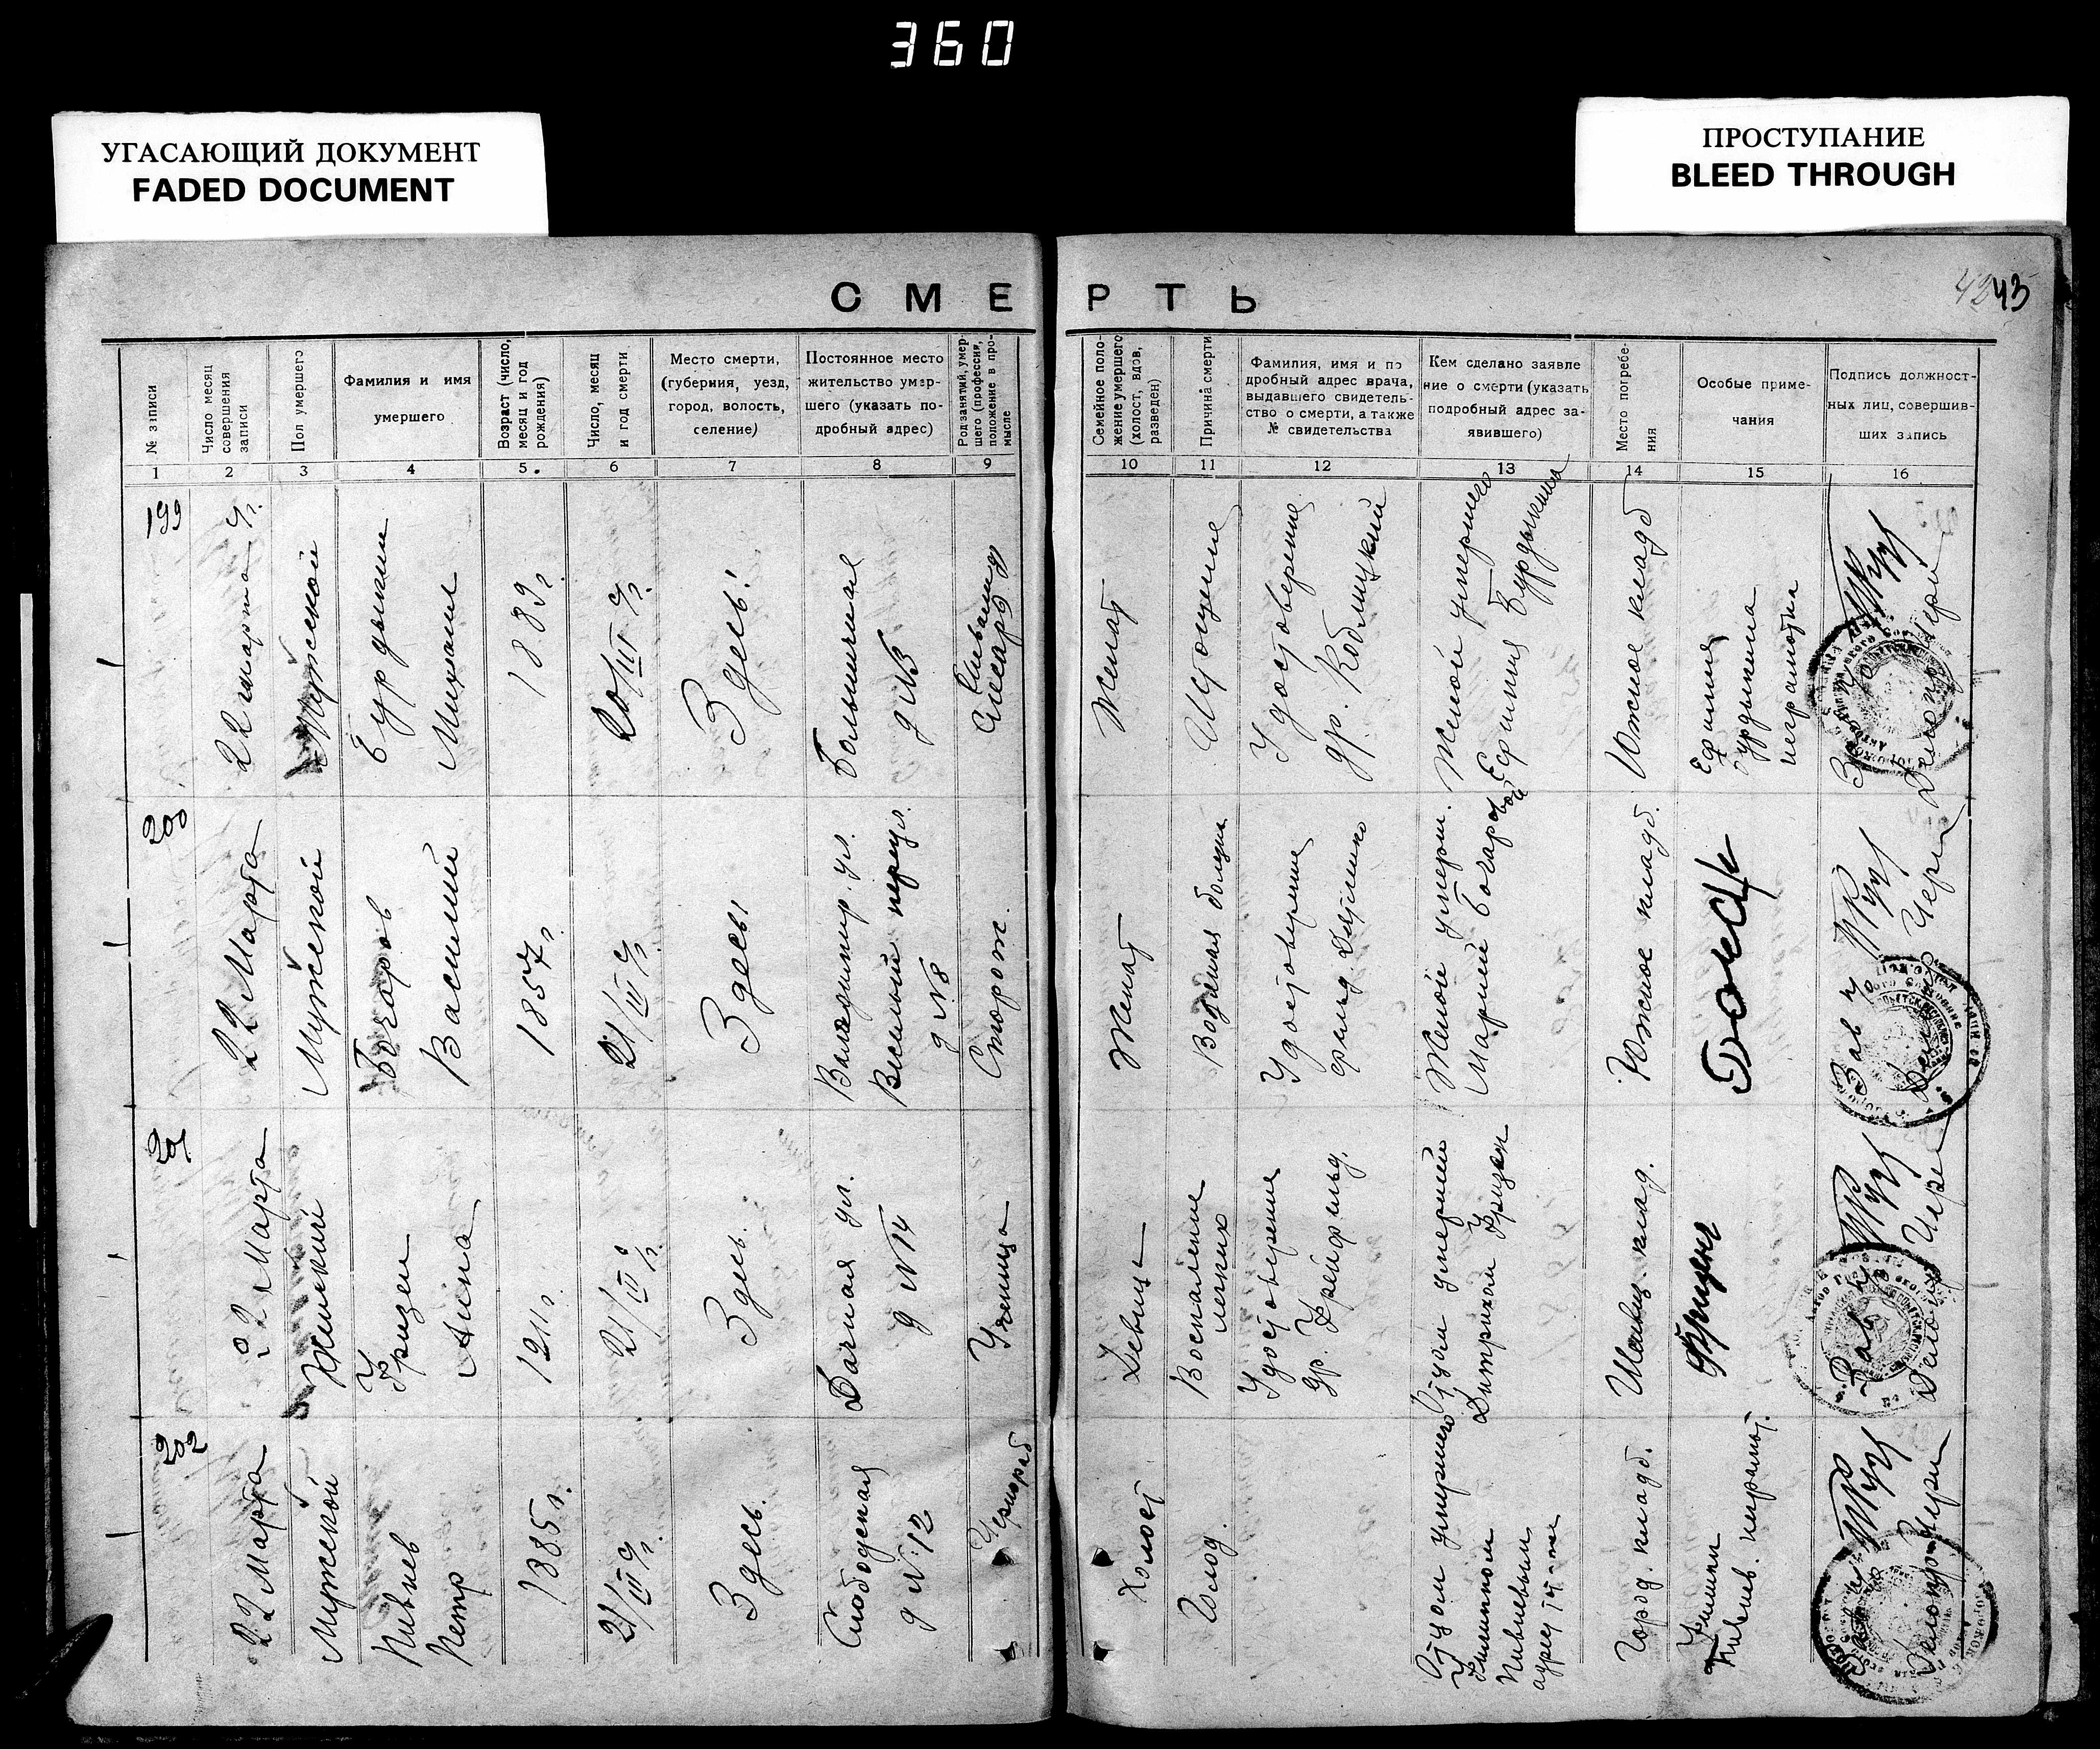 360
УГАСАЮЩИЙ ДОКУМЕНТ
FADED DOCUMENT
ПРОСТУПАНИЕ
BLEED THROUGH
СМЕРТЬ
42 43
№ записи
Число месяц
совершения
записи
Пол умершего
Фамилия и имя
умершего
Возраст (число,
месяц и год
рождения)
Число, месяц
и год смерти
Место смерти,
(губерния, уезд,
город, волость,
селение)
Постоянное место
жительство умер-
шего (указать по-
дробный адрес)
Род занятий, умер-
шего (профессия,
положение в про-
мысле
Семейное поло-
жение умершего
(холост, вдов,
разведен)
Причина смерти
Фамилия, имя и по
дробный адрес врача,
выдавшего свидетель-
ство о смерти, а также
№ свидетельства
Кем сделано заявле
ние о смерти (указать
подробный адрес за-
явившего)
Место погребе-
ния
Особые приме-
чания
Подпись должност-
ных лиц, совершив-
ших запись
1 2 3 4 5. 6 7 8 9 10 11 12 13 14 15 16
199
22 марта с/г.
Мужской
Бурдыкин
Михаил
1889г.
20/III с/г
Здесь!
Больничная
д №3
Слесарь
Женат
Истощение
Удостоверение
др. Коблицкий
Женой умершего
Ефимия Бурдыкина
Южное кладб
Ефимия
Бурдыкина
неграмотна
200
22 Марта
Мужской
Бочаров
Василий
1857г.
21/III с/г
Здесь
Владимир. ул.
д №8
Сторож.
Женат
Водяная болезнь
Удостоверение
Женой умерш.
Марией Бочаровой
Южное кладб.
Зав
201
22 Марта
Женский
Фризен
Анна
12л.
21/III с/г.
Здесь.
Дачная ул.
д №14
Ученица
Девица
Воспаление
легких
Удостоверение
др. Фрейфельд.
Отцом умершей
Дитрихом Фризен
Фризен
Зав
202
22 Марта
Мужской
Пивнев
Петр
1885г.
21/III с/г.
Здесь.
Слободская
д №12
Чернораб
Холост
Голод.
Отцом умершего
Филиппом
Пивневым
адрес тот-же
Город. кладб.
Филипп
Пивнев. неграмот.
Зав